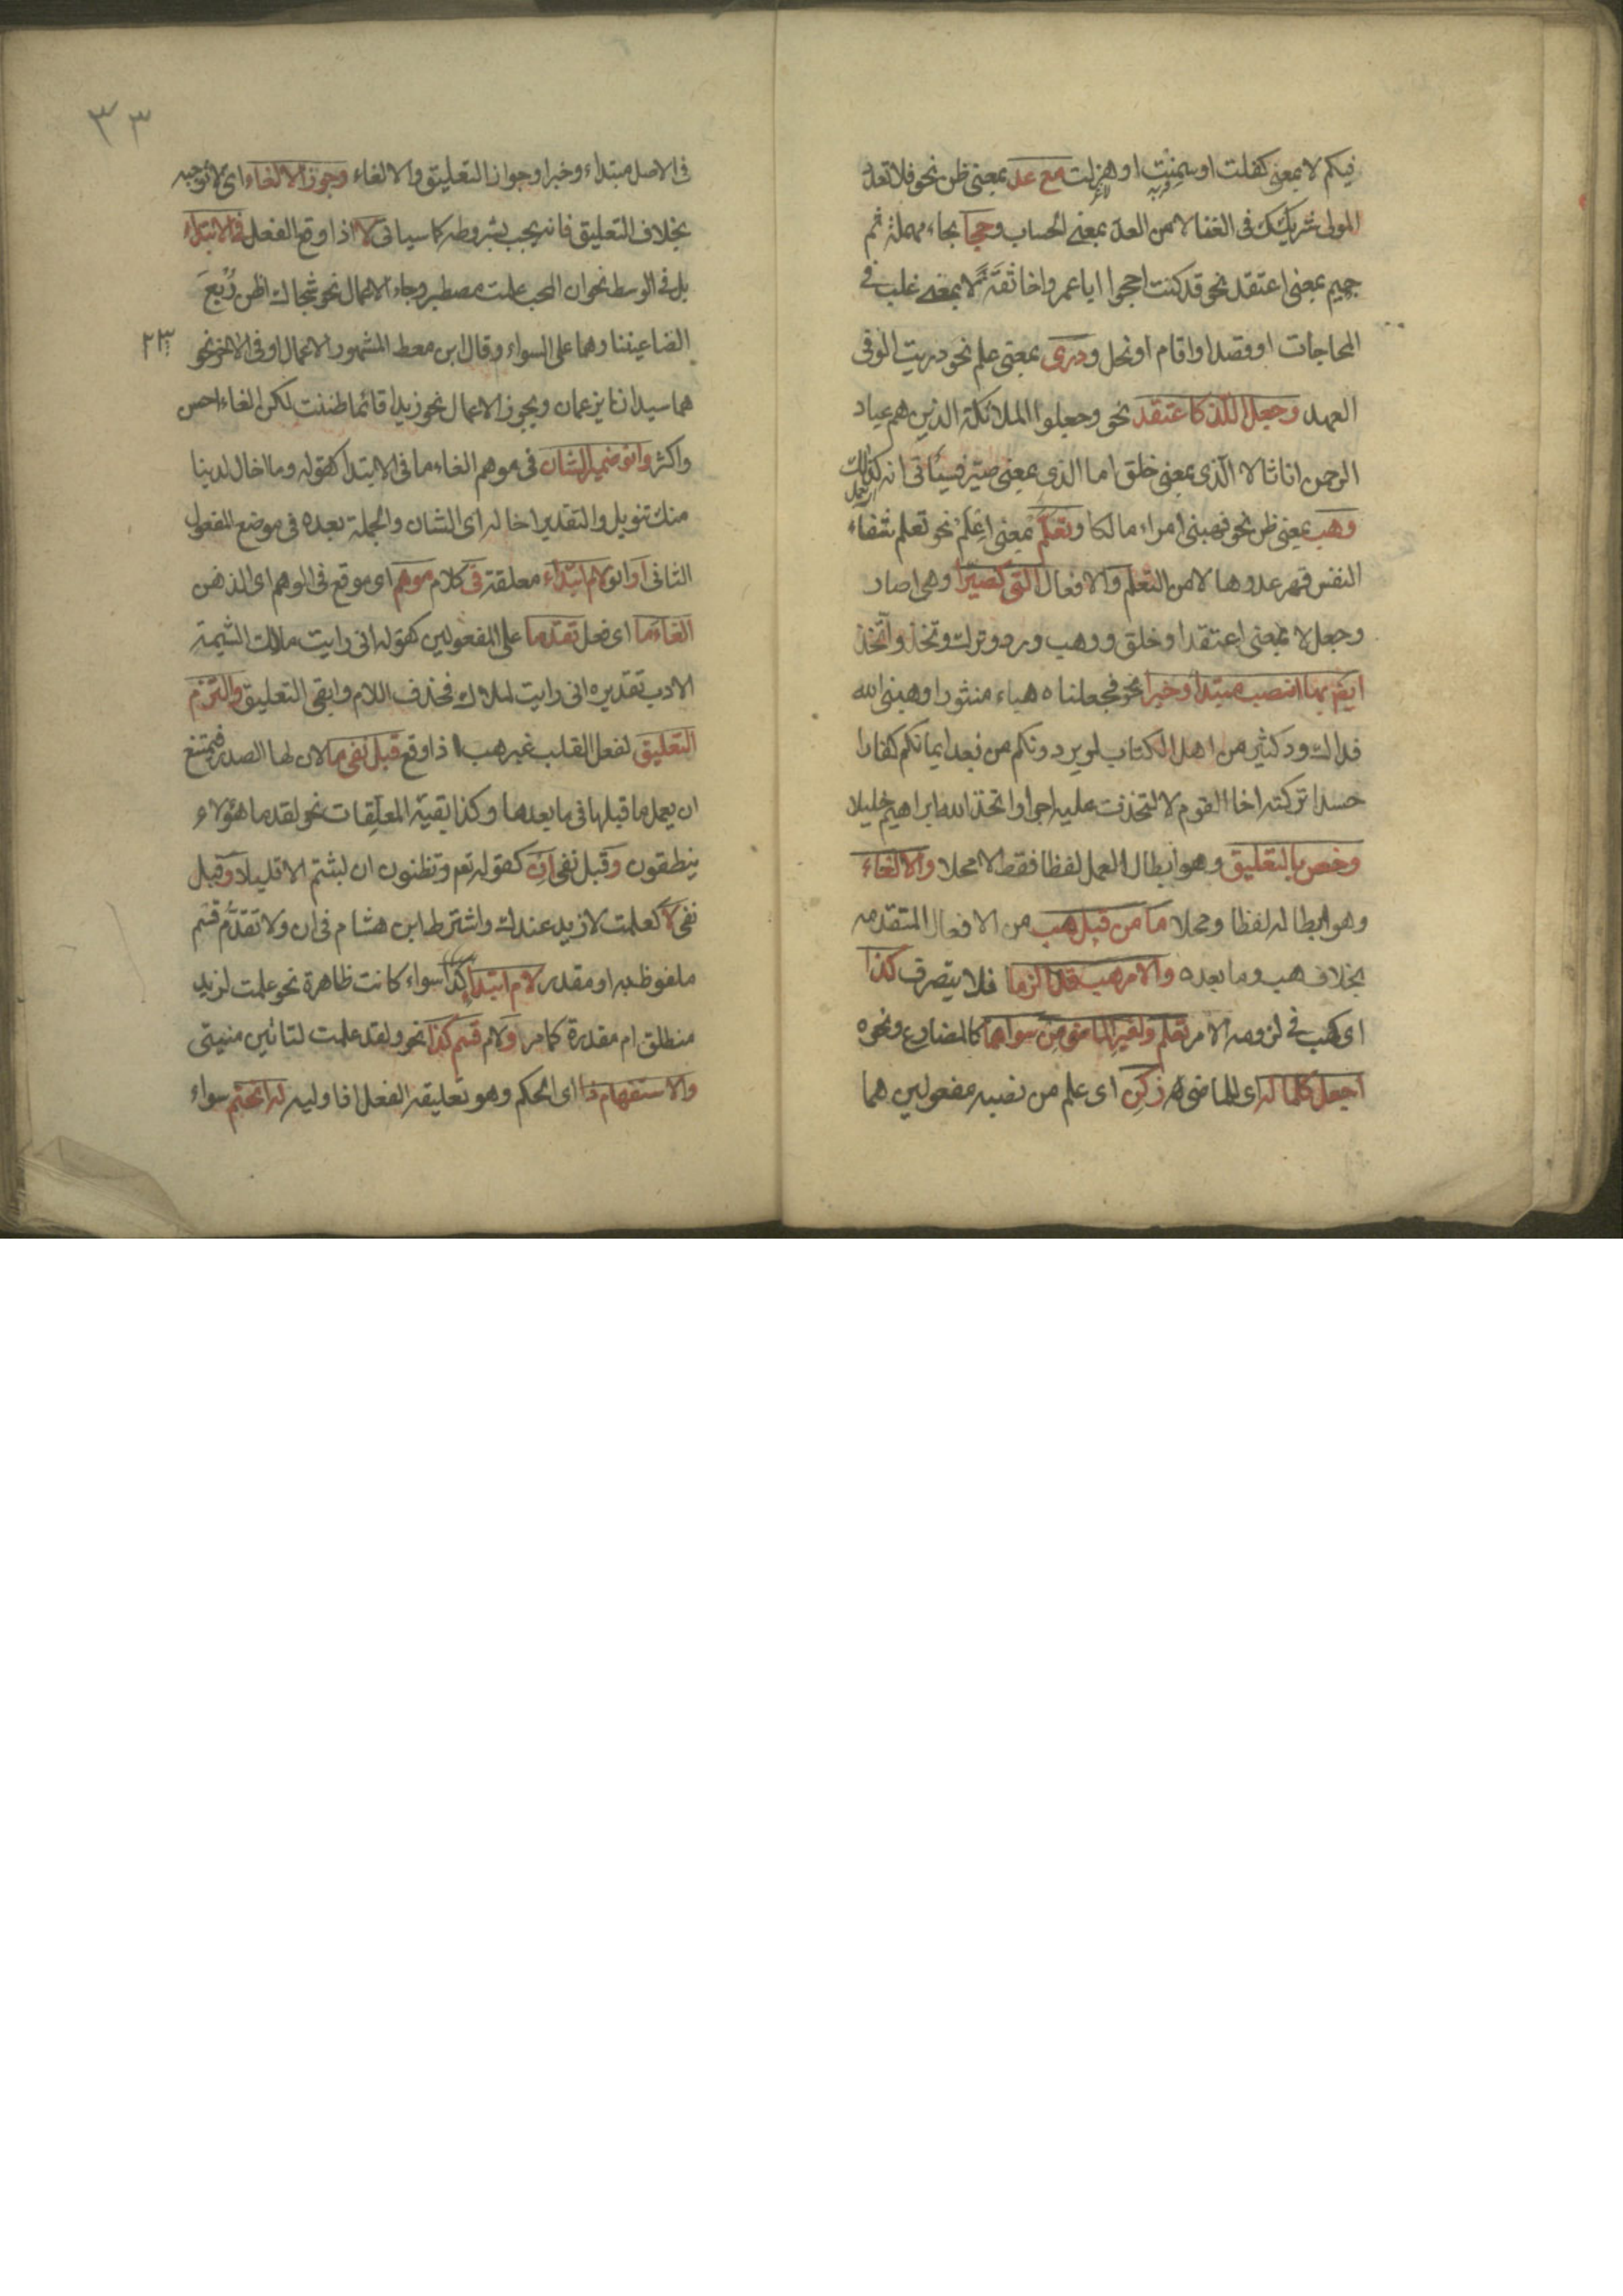 فيكم لا بمعنى كفلت او سمنت او هزلت مع عد بمعنى ظن نحو فلا تعدد
المولى شريكك فى الغنا لا من العد بمعنى الحساب وحجا بحاء مهملة ثم
جيم بمعنى اعتقد نحو قد كنت احجوا ابا عمرو اخا ثقة لا بمعنى غلب فى
المحاجات او قصد او اقام او بخل ودرى بمعنى علم نحو دريت الوفى
العهد وجعل اللذ كاعتقد نحو وجعلوا الملائكة الذين هم عباد
الرحمن اناثا لا الذى بمعنى خلق اما الذى بمعنى صير فسياتى انه كذلك
وهب بمعنى ظن نحو فهبنى امراء هالكا وتعلم بمعنى اعلم نحو تعلم شفاء
النفس قهر عدوها لا من التعلم والافعال التى كصيرا وهى اصار
وجعل لا بمعنى اعتقد او خلق ووهب ورد وترك وتخذ واتخذ
ايض بها انصب مبتدا وخبرا نحو فجعلناه هباء منثورا وهبنى الله
فداك ود كثير من اهل الكتاب لو يردونكم من بعد ايمانكم كفارا
حسدا تركته اخا القوم لاتخذت عليه اجرا واتخذ الله ابراهيم خليلا
وخص بالتعليق وهو ابطال العمل لفظا فقط لا محلا والالغاء
وهو ابطاله لفظا ومحلا ما من قبل هب من الافعال المتقدمة
بخلاف هب وما بعده والامر هب قد الزما فلا يتصرف كذا
اى كهب فى لزومه الامر تعلم ولغير الماض من سواهما كالمضارع ونحوه
اجعل كلما له اى للماضى زكن اى علم من نصبه مفعولين هما
٣٣
فى الاصل مبتداء وخبر او جواز التعليق والالغاء وجوز الالغاء اى لا توجبه
بخلاف التعليق فانه يجب بشروطه كما سياتى لا اذا وقع الفعل فى الابتداء
بل فى الوسط نحو ان المحب علمت مصطبر وجاء الاعمال نحو شجاك اظن ربع
الضاعيننا وهما على السواء وقال ابن معط المشهور الاعمال او فى الاخر نحو
هما سيدانا يزعمان ويجوز الاعمال نحو زيدا قائما ظننت لكن الغاء احسن
واكثر وانو ضمير الشان فى موهم الغاء ما فى الابتدا كقوله وما اخال لدينا
منك تنويل والتقدير اخاله اى الشان والجملة بعده فى موضع المفعول
الثانى او انو لام ابتداء معلقة فى كلام موهم اى موقع فى الوهم اى الذهن
الغاء ما اى فعل تقدما على المفعولين كقوله انى رايت ملاك الشيمة
الادب تقديره انى رايت لملاك فحذف اللام وابقى التعليق والتزم
التعليق لفعل القلب غير هب اذا وقع قبل نفى ما لان لها الصدر فيمتنع
ان يعمل ما قبلها فى ما بعدها وكذا بقية المعلقات نحو لقد ما هؤلاء
ينطقون وقبل نفى ان كقوله تعم وتظنون ان لبثتم الا قليلا وقبل
نفى لا كعلمت لا زيد عندك واشترط ابن هشام فى ان ولا تقدم قسم
ملفوظ به او مقدر لام ابتداء كذا سواء كانت ظاهرة نحو علمت لزيد
منطلق ام مقدرة كما مر او لام قسم كذا نحو ولقد علمت لتاتين منيتى
والاستفهام ذا اى الحكم وهو تعليقه الفعل اذا وليه له انحتم سواء